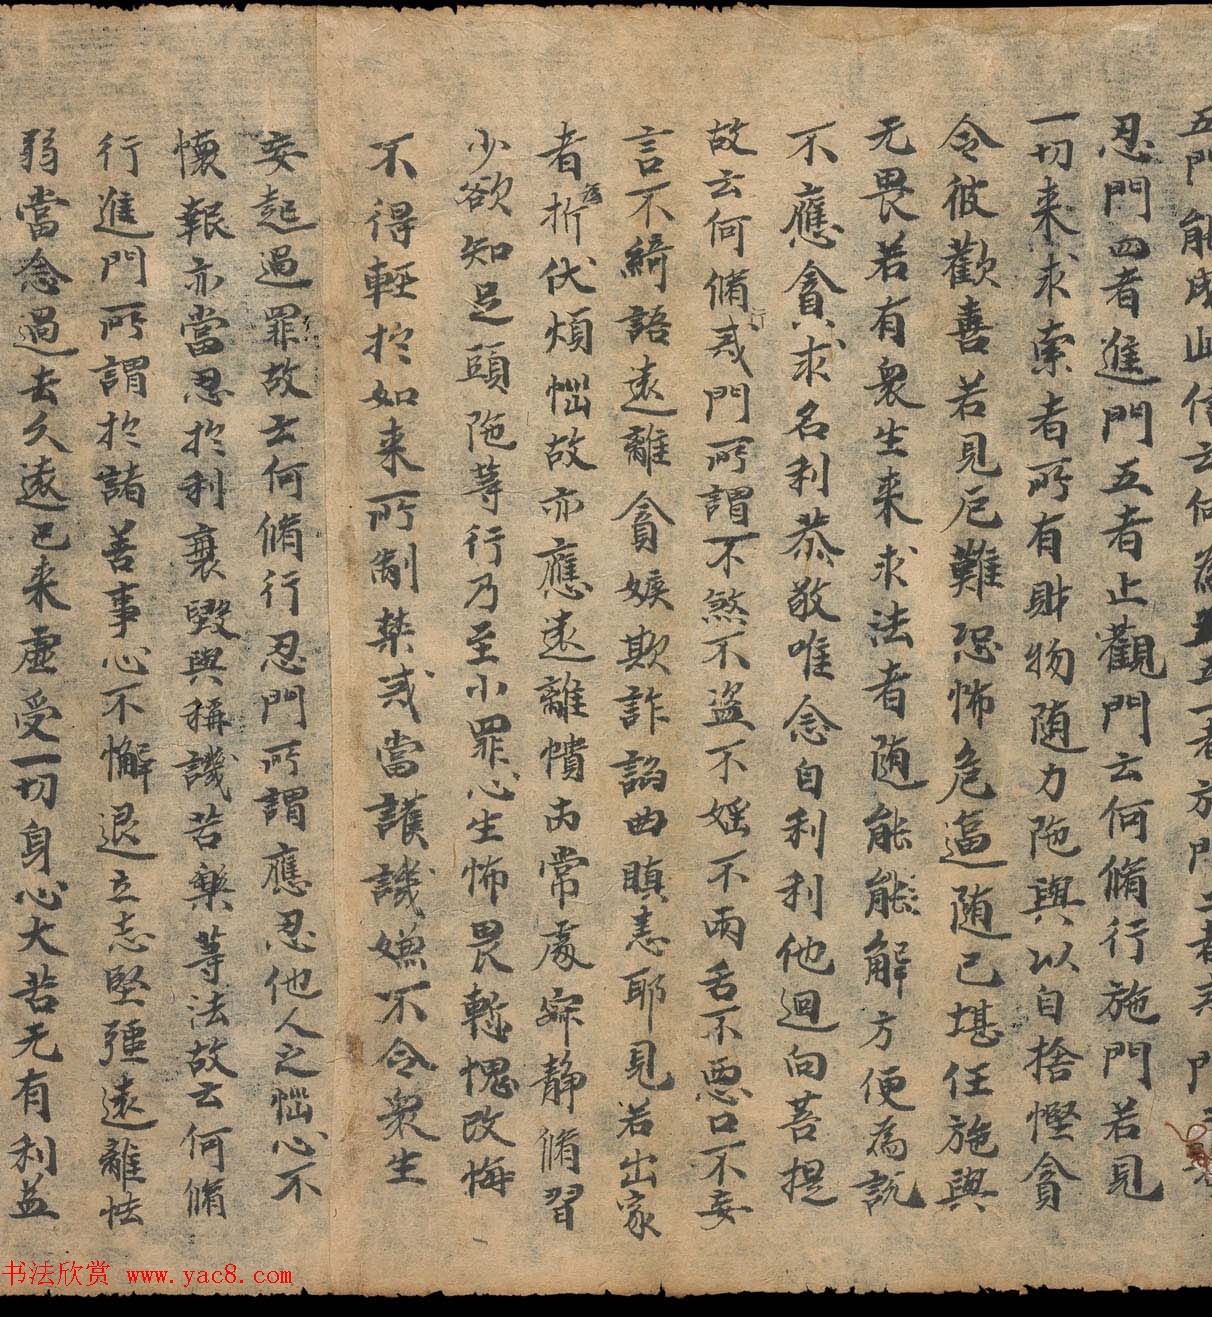 五門能成此信云何為五一者施門二者戒門三者
忍門四者進門五者止觀門云何脩行施門若見
一切来求索者所有財物随力施與以自捨慳貪
令彼歡喜若見厄難恐怖危逼随己堪任施與
无畏若有衆生来求法者随能能解方便為説
不應貪求名利恭敬唯念自利利他迴向菩提
故云何脩行戒門所謂不煞不盗不婬不兩舌不惡口不妄
言不綺語遠離貪嫉欺詐諂曲瞋恚耶見若出家
者為折伏煩惱故亦應遠離憒丙常處寂静脩習
少欲知足頭陁等行乃至小罪心生怖畏慙愧改悔
不得輕扵如来所制禁戒當護譏嫌不令衆生
妄起過罪故云何脩行忍門所謂應忍他人之惱心不
懷報亦當忍扵利衰毀與稱譏苦樂等法故云何脩
行進門所謂扵諸善事心不懈退立志堅強遠離怯
弱當念過去久遠已来虚受一切身心大苦无有利益
书法欣赏 www.yac8.com